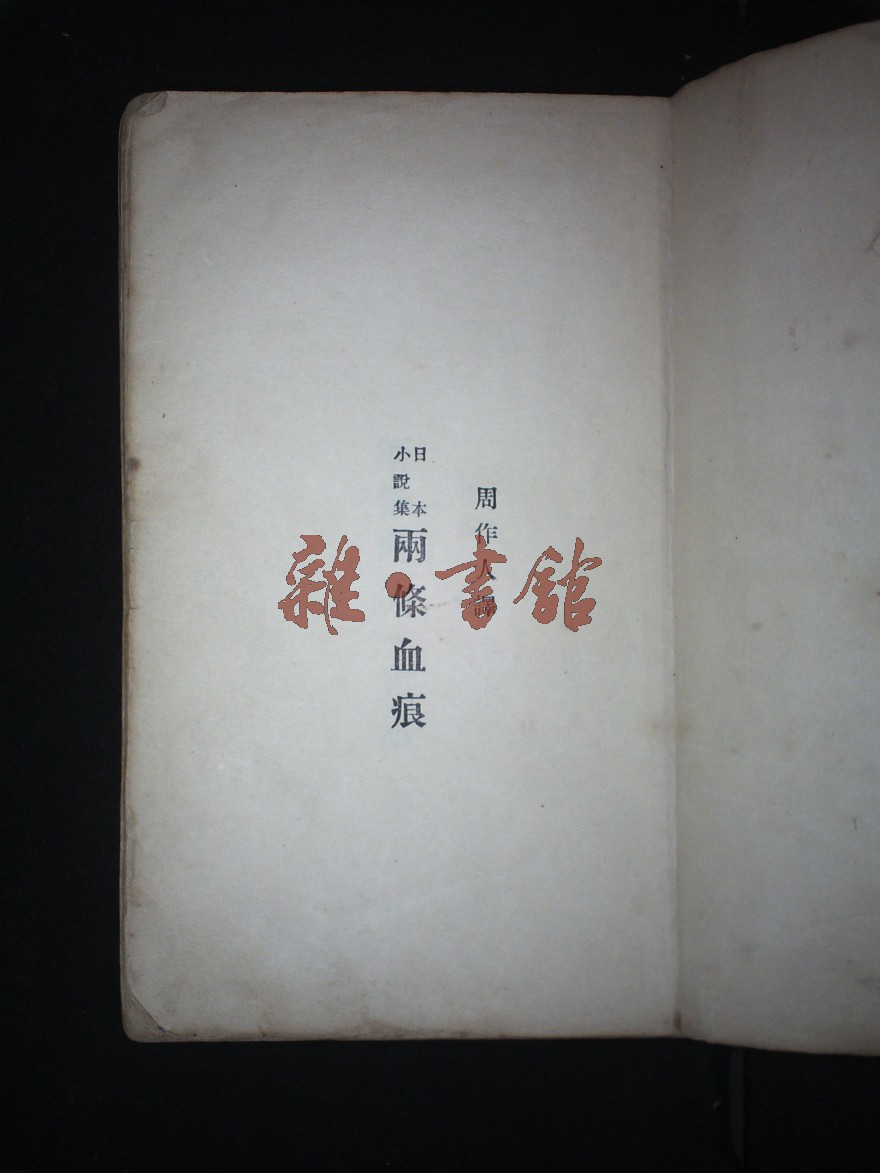 周作人譯
日本
小說集
兩條血痕
雜·書館